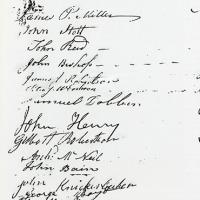 James P. Miller
John Stott
John Reid
John Bishop
James Robertson
Samuel Tobbin
John Henry
Gilbert Robertson
Archd McNeil
John Bain
John Knickerbocker
George